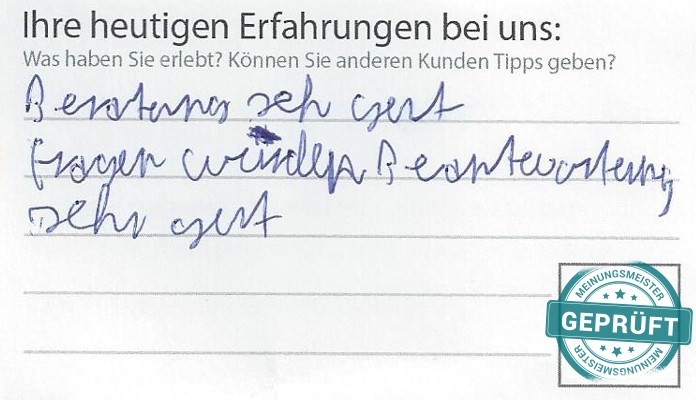 Ihre heutigen Erfahrungen bei uns:
Was haben Sie erlebt? Können Sie anderen Kunden Tipps geben?
Beratung seh gut
fragen würden Beantwortung
sehr gut
MEINUNGSMEISTER
GEPRÜFT
MEINUNGSMEISTER